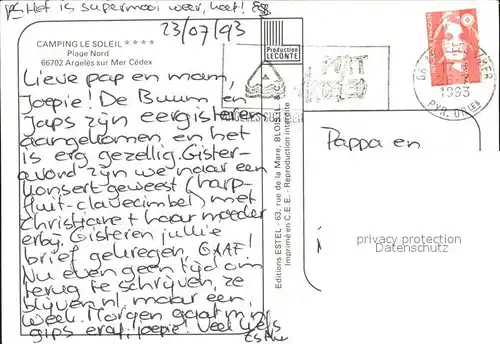 PS Het is supermooi weer, heet!
23/07/93
CAMPING LE SOLEIL ****
Plage Nord
66702 Argelès sur Mer Cédex
Production
LECONTE
Lieve pap en mam,
Joepie! De Buum en
Japs zijn eergisteren
aangekomen en het
is erg gezellig. Gister-
avond zijn we naar een
konsert geweest (harp-
fluit-clavecimbel) met
Christiane + haar moeder
erbij. Gisteren jullie
brief gekregen, GAAF!
Nu even geen tijd om
terug te schrijven, ze
blijven nl. maar een
week. Morgen gaat m'n
gips eraf, joepie! Veel liefs
Editions ESTEL - 63, rue de la Mare, BLOIS
Imprimé en C.E.E. - Reproduction interdite
1993
PYR. ORIES
Pappa en
privacy protection